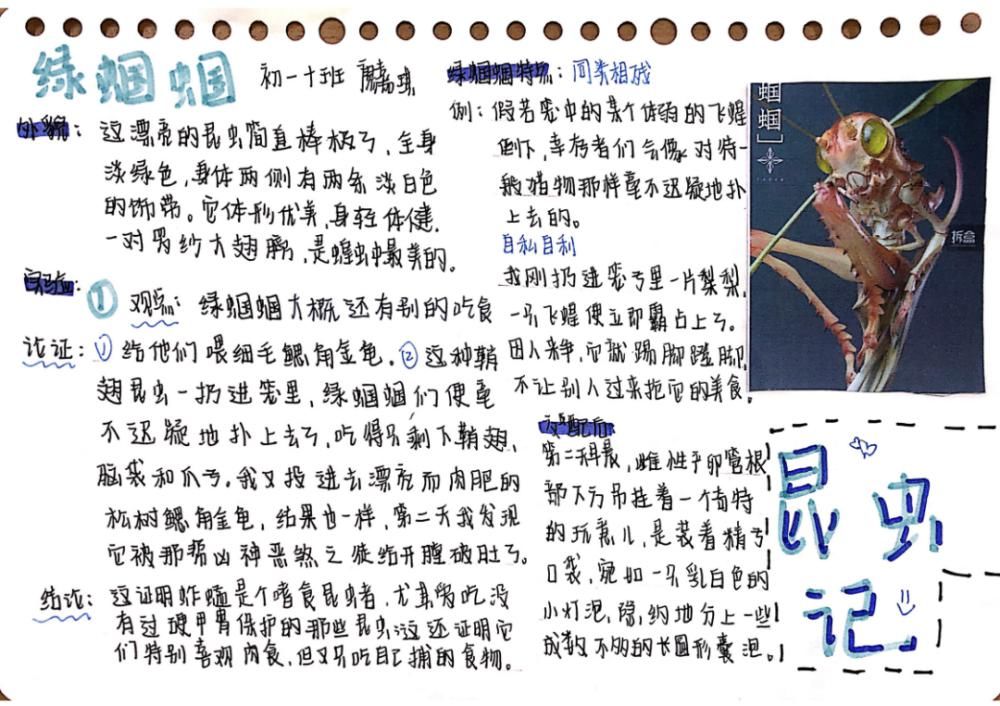 绿蝈蝈 初一十班
外貌：这漂亮的昆虫简直棒极了，全身
淡绿色，身体两侧有两条淡白色
的饰带。它体形优美，身轻体健，
一对罗纱大翅膀，是蝗虫中最美的。
实验：
①观点：绿蝈蝈大概还有别的吃食
论证：①给他们喂细毛鳃角金龟。②这种鞘
翅昆虫一扔进笼里，绿蝈蝈们便毫
不迟疑地扑上去了，吃得只剩下鞘翅、
脑袋和爪子。我又投进去漂亮而肉肥的
松树鳃角金龟，结果也一样，第二天我发现
它被那帮凶神恶煞之徒给开膛破肚了。
结论：这证明蚱蜢是个嗜食昆虫者，尤其爱吃没
有过硬甲胄保护的那些昆虫；这还证明它
们特别喜欢肉食，但又只吃自己捕的食物。
绿蝈蝈特点：同类相残
例：假若笼中的某个体弱的飞蝗
倒下，幸存者们会像对待一
般猎物那样毫不迟疑地扑
上去的。
自私自利
我刚扔进笼子里一片梨梨，
一只飞蝗便立即霸占上了。
因人来争，它就踢脚蹬脚，
不让别人过来抢它的美食。
交配后
第二天早晨，雌性产卵管根
部下方吊挂着一个奇特
的玩意儿，是装着精子
口袋，宛如一只乳白色的
小灯泡，隐约地分上一些
成数不多的长圆形囊泡。
蝈蝈」
拆盒
昆虫
记